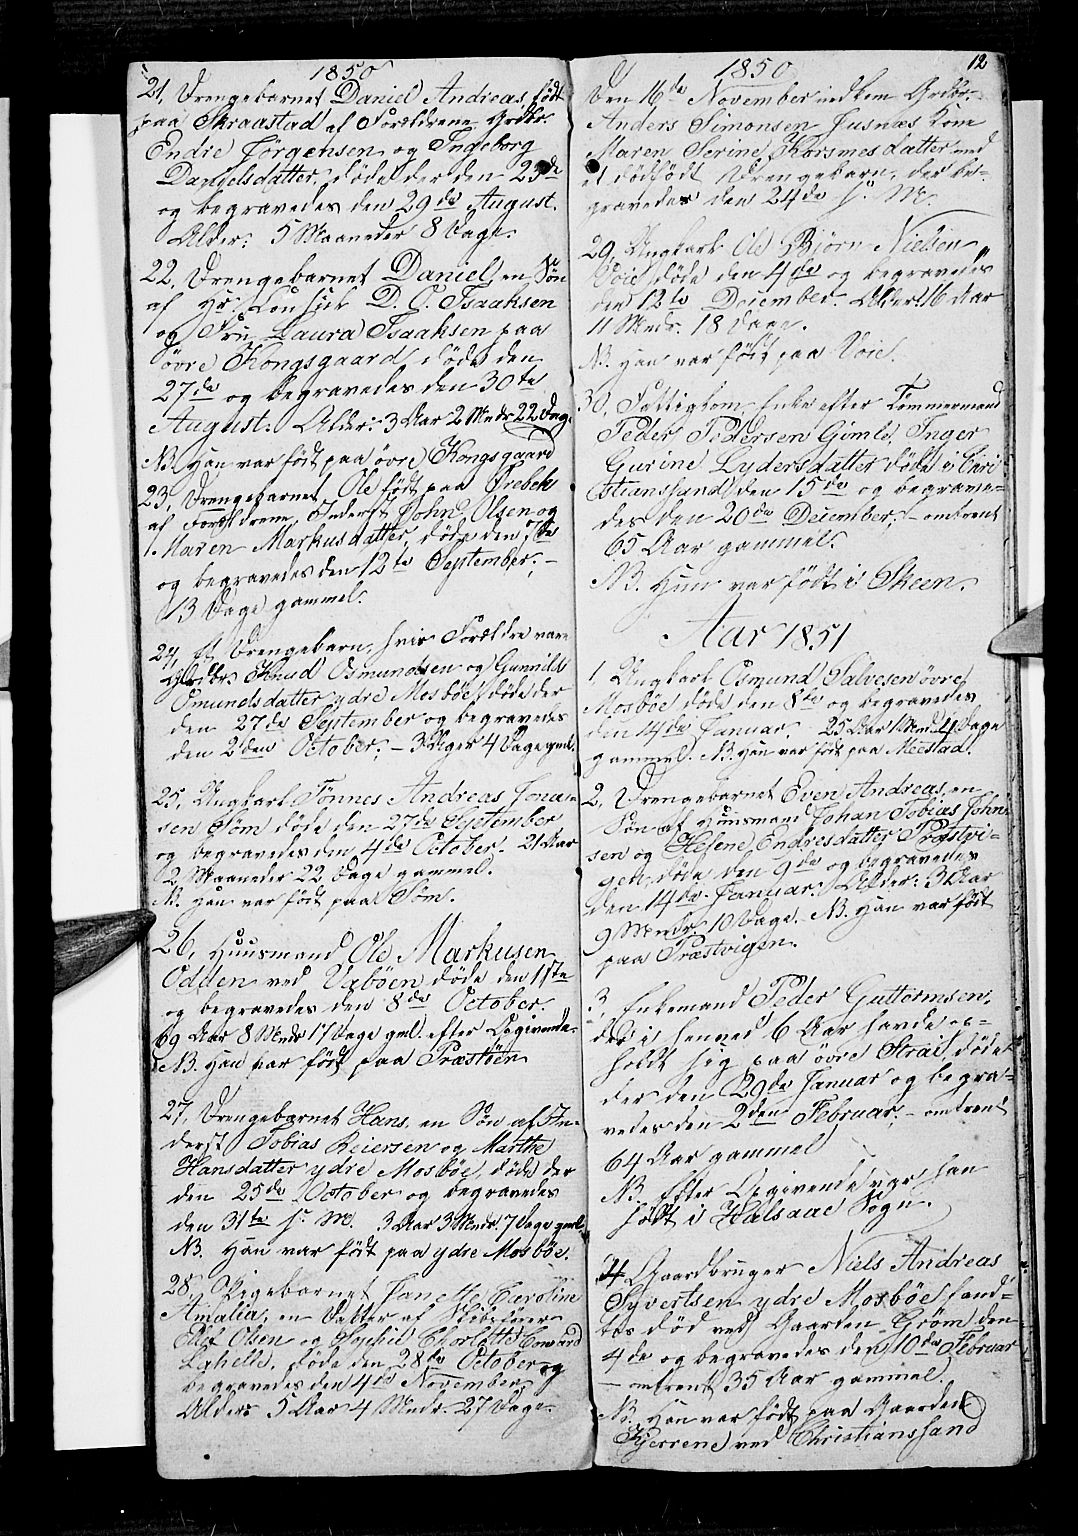 1850
21, Drengebarnet Daniel Andreas, født
paa Skraastad af Forældrene Grdbr.
Endre Jørgensen og Ingeborg
Danielsdatter, døde der den 23de
og begravedes den 29de August.
Alder: 5 Maaneder 8 Dage.
22, Drengebarnet Daniel, en Søn
af Hr. Consul D. O. Isaaksen
og Fru Laura Isaaksen paa
øvre Kongsgaard, døde den
27de og begravedes den 30te
August. Alder: 3 Aar 2 Mndr 22 Dag.
NB. Han var født paa øvre Kongsgaard
23, Drengebarnet Ole født paa Drebek
af Forældrene, Inderst John Olsen og
Maren Markusdatter, døde den 7de
og begravedes den 12te September, –
13 Dage gammel.
24, et Drengebarn, hvis Forældre vare
Grdbr Knud Osmundsen og Gunnild
Omundsdatter ydre Mosbøe, døde der
den 27de September og begravedes
den 2den October, – 3 Uger 4 Dage gml.
25, Ungkarl Tønnes Andreas Jona-
sen Søm døde den 27de September
og begravedes den 4de October. 21 Aar
2 Maaneder 22 Dage gammel.
NB. Han var født paa Søm.
26, Huusmand Ole Markusen
Odden ved Vabøen døde den 1ste
og begravedes den 8de October.
69 Aar 8 Mndr 17 Dage gml. efter Opgivende.
NB. Han var født paa Præstøen
27, Drengebarnet Hans, en Søn af In-
derst Tobias Reiersen og Marthe
Hansdatter ydre Mosbøe, døde der
den 25de October og begravedes
den 31te s. M. 3 Aar 3 Mndr. 7 Dage gml.
NB. Han var født paa ydre Mosbøe.
28, Pigebarnet Janette Caroline
Amalia, en Datter af Skibsfører
Olsen og Charlotte
døde den 28de October og
begravedes den 4de November,
Alder: 5 Aar 4 Mndr. 27 Dage.
12
1850
Den 16de November nedkom Grdbr.
Anders Simonsen Jusnæs Kone
Maren Serine Korsmosdatter med
et dødfødt Drengebarn, der be-
gravedes den 24de s. M.
29, Ungkarl Ole Bjørn Nielsen
Voie, døde den 4de og begravedes
den 12te December. Alder: 16 Aar
11 Mndr. 18 Dage.
NB. Han var født paa Voie.
30, Fattiglem, Enke efter Tømmermand
Peder Pedersen Gimle, Inger
Gurine Lydersdatter døde i Chri
stianssand den 15de og begrave-
des den 20de December, – omtrent
65 Aar gammel.
NB. Hun var født i Skeen.
Aar 1851
1, Ungkarl Osmund Salvesen øvre
Mosbøe døde den 8de og begravedes
den 14de Januar, 25 Aar 1 Mnd. 4 Dage
gammel. NB. Han var født paa Meestad.
2, Drengebarnet Even Andreas, en
Søn af Huusmand Johan Tobias Johni-
sen og Helene Endresdatter Præstvi-
gen, døde den 9de og begravedes
den 14de Januar. Alder: 3 Aar
9 Mndr 10 Dage. NB. Han var født
paa Præstvigen.
3, Enkemand Peder Guttormsen,
der i henved 6 Aar havde op-
holdt sig paa øvre Strai, døde
der den 29de Januar og begra-
vedes den 2den Februar, – omtrent
64 Aar gammel
NB. Efter Opgivende var han
født i Halsaae Sogn.
4, Gaardbruger Niels Andreas
Syvertsen ydre Mosbøe, fand-
tes død ved Gaarden Grøm den
4de og begravedes den 10de Februar
– omtrent 35 Aar gammel.
NB. Han var født paa Gaarden
Kjerrene ved Christianssand